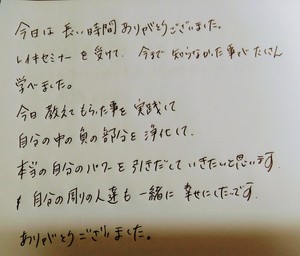 今日は長い時間ありがとうございました。
レイキセミナーを受けて、今まで知らなかった事がたくさん
学べました。
今日教えてもらった事を実践して
自分の中の負の部分を浄化して、
本当の自分のパワーを引きだしていきたいと思います。
自分の周りの人達も一緒に幸せにしたいです。
ありがとうございました。